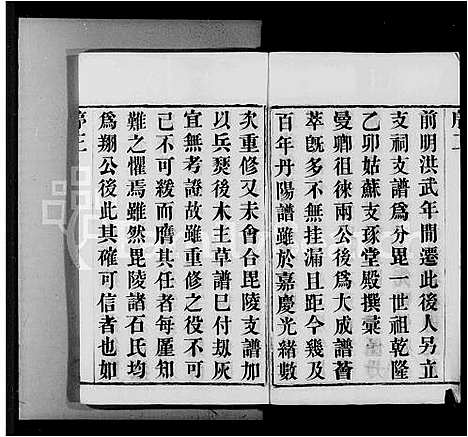 前明洪武年間遷此後人另立
支祠支譜為分毘一世祖乾隆
乙卯姑蘇支琢堂殿撰彙
曼卿徂徠兩公後為大成譜薈
萃旣多不無挂漏且距今幾及
百年丹陽譜雖於嘉慶光緒數
次重修又未會合毘陵支譜加
以兵燹後木主草譜巳付刼灰
宜無考證故雖重修之役不可
已不可緩而膺其任者每厪知
難之懼焉雖然毘陵諸石氏均
為翔公後此其確可信者也如
序三